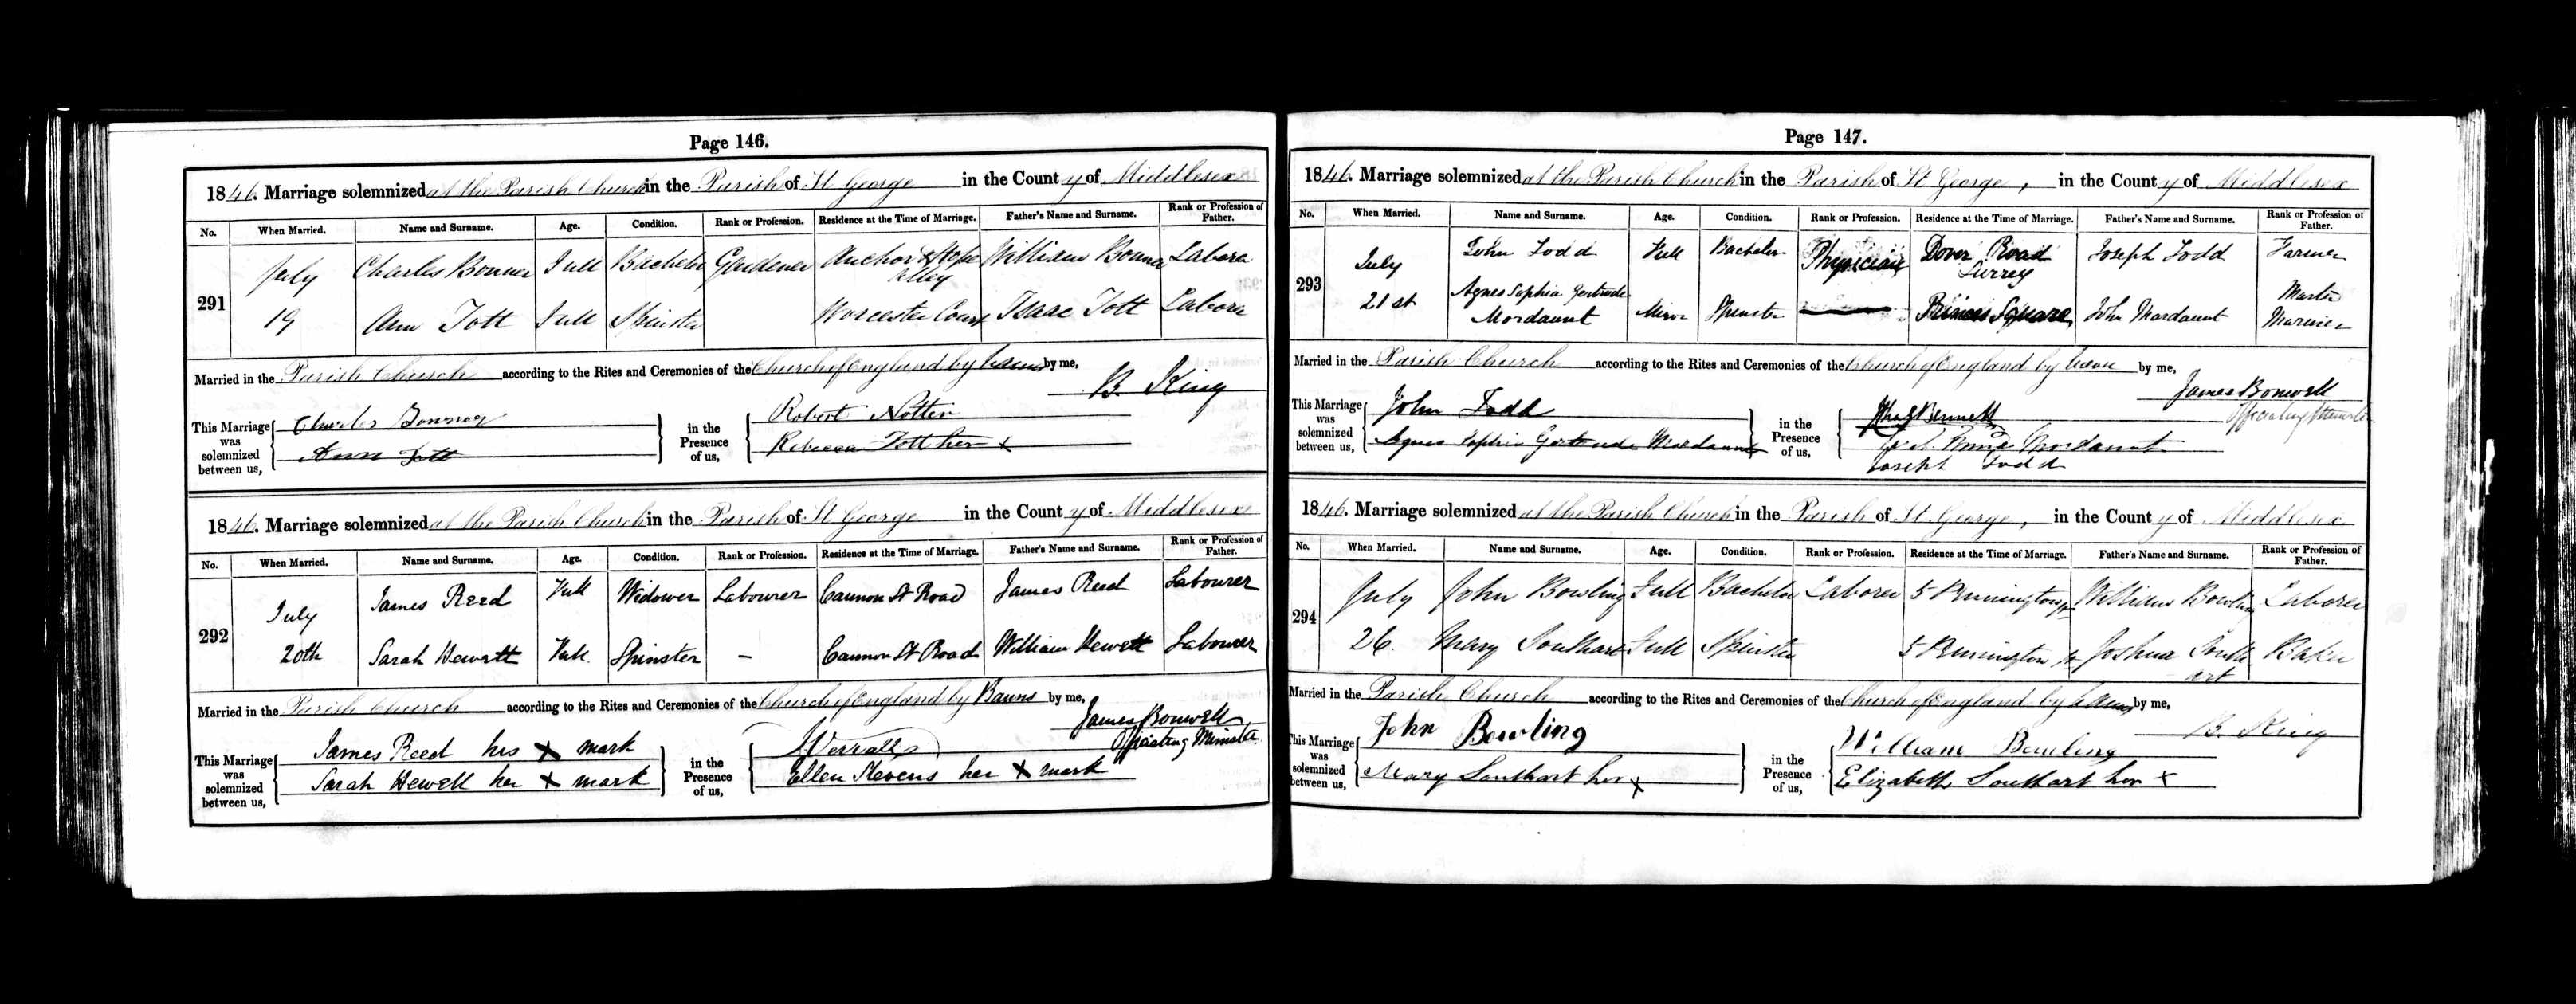 Page 146.
1846. Marriage solemnized at the Parish Church in the Parish of St George in the County of Middlesex
No. When Married. Name and Surname. Age. Condition. Rank or Profession. Residence at the Time of Marriage. Father's Name and Surname. Rank or Profession of Father.
291
July Charles Bonner Full Bachelor Gardener Anchor & Hope Alley William Bonner Labora
19 Ann Tott Full Spinster Worcester Court Isaac Tott Labora
Married in the Parish Church according to the Rites and Ceremonies of the Church of England by banns by me,
B. King
This Marriage was solemnized between us,
Charles Bonner
Ann Tott
in the Presence of us,
Robert Notten
Rebecca Tott her x
1846. Marriage solemnized at the Parish Church in the Parish of St George in the County of Middlesex
No. When Married. Name and Surname. Age. Condition. Rank or Profession. Residence at the Time of Marriage. Father's Name and Surname. Rank or Profession of Father.
292
July James Reed Full Widower Labourer Cannon St Road James Reed Labourer
20th Sarah Hewett Full Spinster – Cannon St Road William Hewett Labourer
Married in the Parish Church according to the Rites and Ceremonies of the Church of England by Banns by me,
James Bonwell
Officiating Minister
This Marriage was solemnized between us,
James Reed his x mark
Sarah Hewett her x mark
in the Presence of us,
Ellen Stevens her x mark
Page 147.
1846. Marriage solemnized at the Parish Church in the Parish of St George, in the County of Middlesex
No. When Married. Name and Surname. Age. Condition. Rank or Profession. Residence at the Time of Marriage. Father's Name and Surname. Rank or Profession of Father.
293
July John Todd Full Bachelor Physician Dover Road Surrey Joseph Todd Farmer
21st Agnes Sophia Gertrude Mordaunt Minor Spinster Princes Square John Mordaunt Master Mariner
Married in the Parish Church according to the Rites and Ceremonies of the Church of England by by me,
James Bonwell
Officiating Minister
This Marriage was solemnized between us,
John Todd
Agnes Sophia Gertrude Mordaunt
in the Presence of us,
Bennett
Mordaunt
Joseph Todd
1846. Marriage solemnized at the Parish Church in the Parish of St George, in the County of Middlesex
No. When Married. Name and Surname. Age. Condition. Rank or Profession. Residence at the Time of Marriage. Father's Name and Surname. Rank or Profession of Father.
294
July John Bowling Full Bachelor Laborer 5 William Bowling Laborer
26. Mary Southart Full Spinster 5 Joshua Southart Baker
Married in the Parish Church according to the Rites and Ceremonies of the Church of England by banns by me,
B. King
This Marriage was solemnized between us,
John Bowling
Mary Southart her x
in the Presence of us,
William Bowling
Elizabeth Southart her x